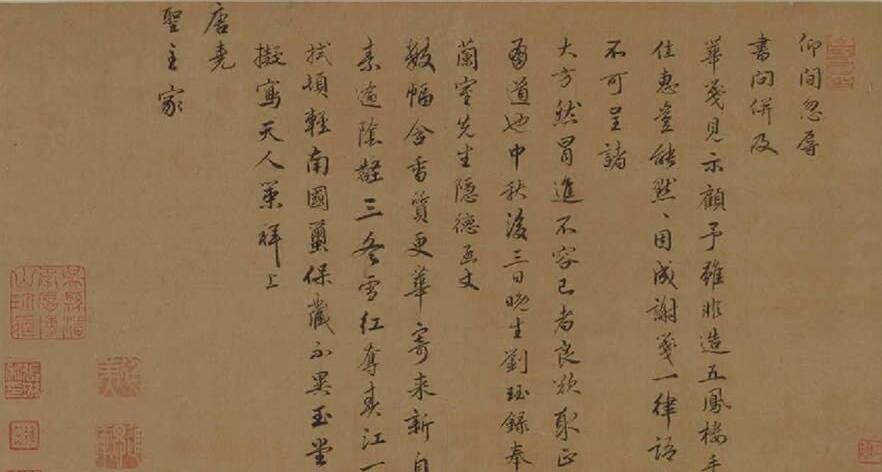 仰間忽辱
書問併及
華箋見示顧予雖非造五鳳樓手
佳惠豈能默〻因成謝箋一律語
不可呈諸
大方然冒進不容已者良欲取正
有道也中秋後三日晚生劉珏錄奉
蘭室先生隱德函丈
數幅含香質更華寄来新自
素逾陰壑三冬雪紅奪春江一
拭頓輕南國保藏不異玉堂
擬寫天人策拜上
唐堯
聖主家